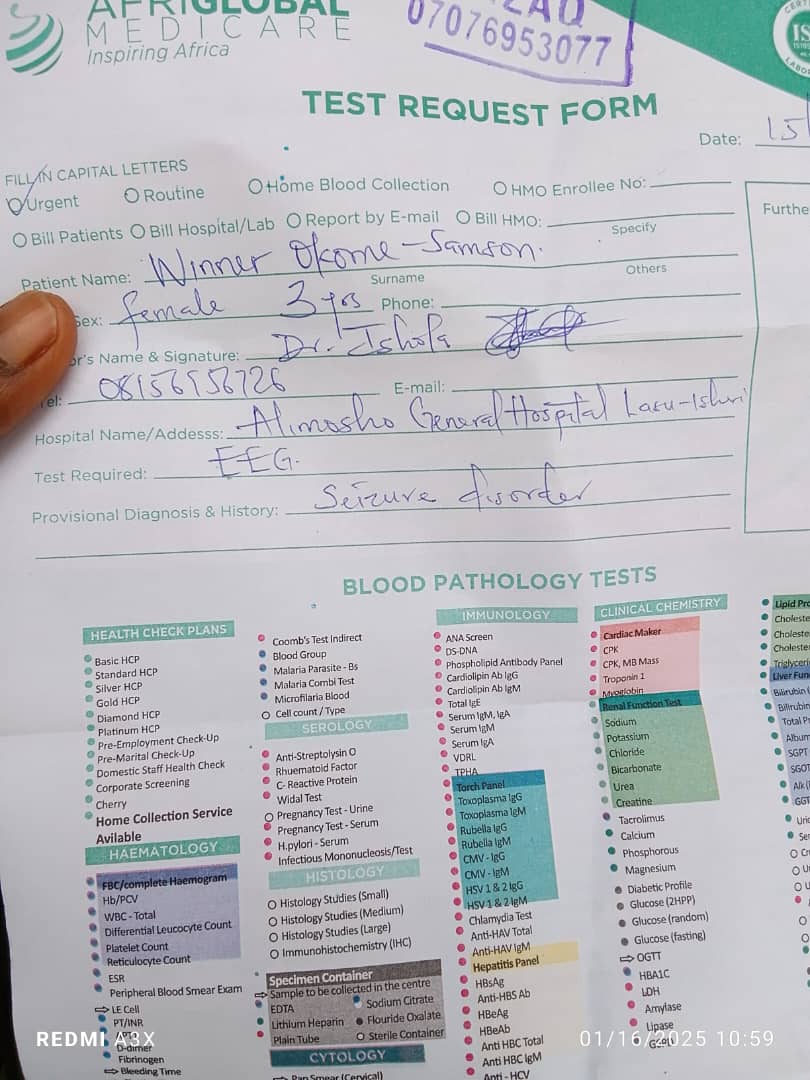 AFRIGLOBAL
MEDICARE
Inspiring Africa
07076953077
TEST REQUEST FORM
Date: 15
FILL IN CAPITAL LETTERS
Urgent Routine Home Blood Collection HMO Enrollee No:
Bill Patients Bill Hospital/Lab Report by E-mail Bill HMO:
Specify
Patient Name: Winner Okome-Samson.
Surname Others
Sex: female 3yrs Phone:
Name & Signature: Dr. Ishola
08156956726 E-mail:
Hospital Name/Addesss: Alimosho General Hospital Lasu-Isheri
Test Required: EEG.
Provisional Diagnosis & History: Seizure disorder
BLOOD PATHOLOGY TESTS
HEALTH CHECK PLANS
Basic HCP
Standard HCP
Silver HCP
Gold HCP
Diamond HCP
Platinum HCP
Pre-Employment Check-Up
Pre-Marital Check-Up
Domestic Staff Health Check
Corporate Screening
Cherry
Home Collection Service
Avilable
HAEMATOLOGY
FBC/complete Haemogram
Hb/PCV
WBC - Total
Differential Leucocyte Count
Platelet Count
Reticulocyte Count
ESR
Peripheral Blood Smear Exam
LE Cell
PT/INR
D-dimer
Fibrinogen
Bleeding Time
Coomb's Test Indirect
Blood Group
Malaria Parasite - Bs
Malaria Combi Test
Microfilaria Blood
Cell count / Type
SEROLOGY
Anti-Streptolysin O
Rhuematoid Factor
C- Reactive Protein
Widal Test
Pregnancy Test - Urine
Pregnancy Test - Serum
H.pylori - Serum
Infectious Mononucleosis/Test
HISTOLOGY
Histology Studies (Small)
Histology Studies (Medium)
Histology Studies (Large)
Immunohistochemistry (IHC)
Specimen Container
Sample to be collected in the centre
EDTA Sodium Citrate
Lithium Heparin Flouride Oxalate
Plain Tube Sterile Container
CYTOLOGY
Pap Smear (Cervical)
IMMUNOLOGY
ANA Screen
DS-DNA
Phospholipid Antibody Panel
Cardiolipin Ab IgG
Cardiolipin Ab IgM
Total IgE
Serum IgM, IgA
Serum IgM
Serum IgA
VDRL
TPHA
Torch Panel
Toxoplasma IgG
Toxoplasma IgM
Rubella IgG
Rubella IgM
CMV - IgG
CMV - IgM
HSV 1 & 2 IgG
HSV 1 & 2 IgM
Chlamydia Test
Anti-HAV Total
Anti-HAV IgM
Hepatitis Panel
HBsAg
Anti-HBS Ab
HBeAg
HBeAb
Anti HBC Total
Anti HBC IgM
Anti - HCV
CLINICAL CHEMISTRY
Cardiac Maker
CPK
CPK, MB Mass
Troponin 1
Myoglobin
Renal Function Test
Sodium
Potassium
Chloride
Bicarbonate
Urea
Creatine
Tacrolimus
Calcium
Phosphorous
Magnesium
Diabetic Profile
Glucose (2HPP)
Glucose (random)
Glucose (fasting)
OGTT
HBA1C
LDH
Amylase
Lipase
REDMI A3X
01/16/2025 10:59